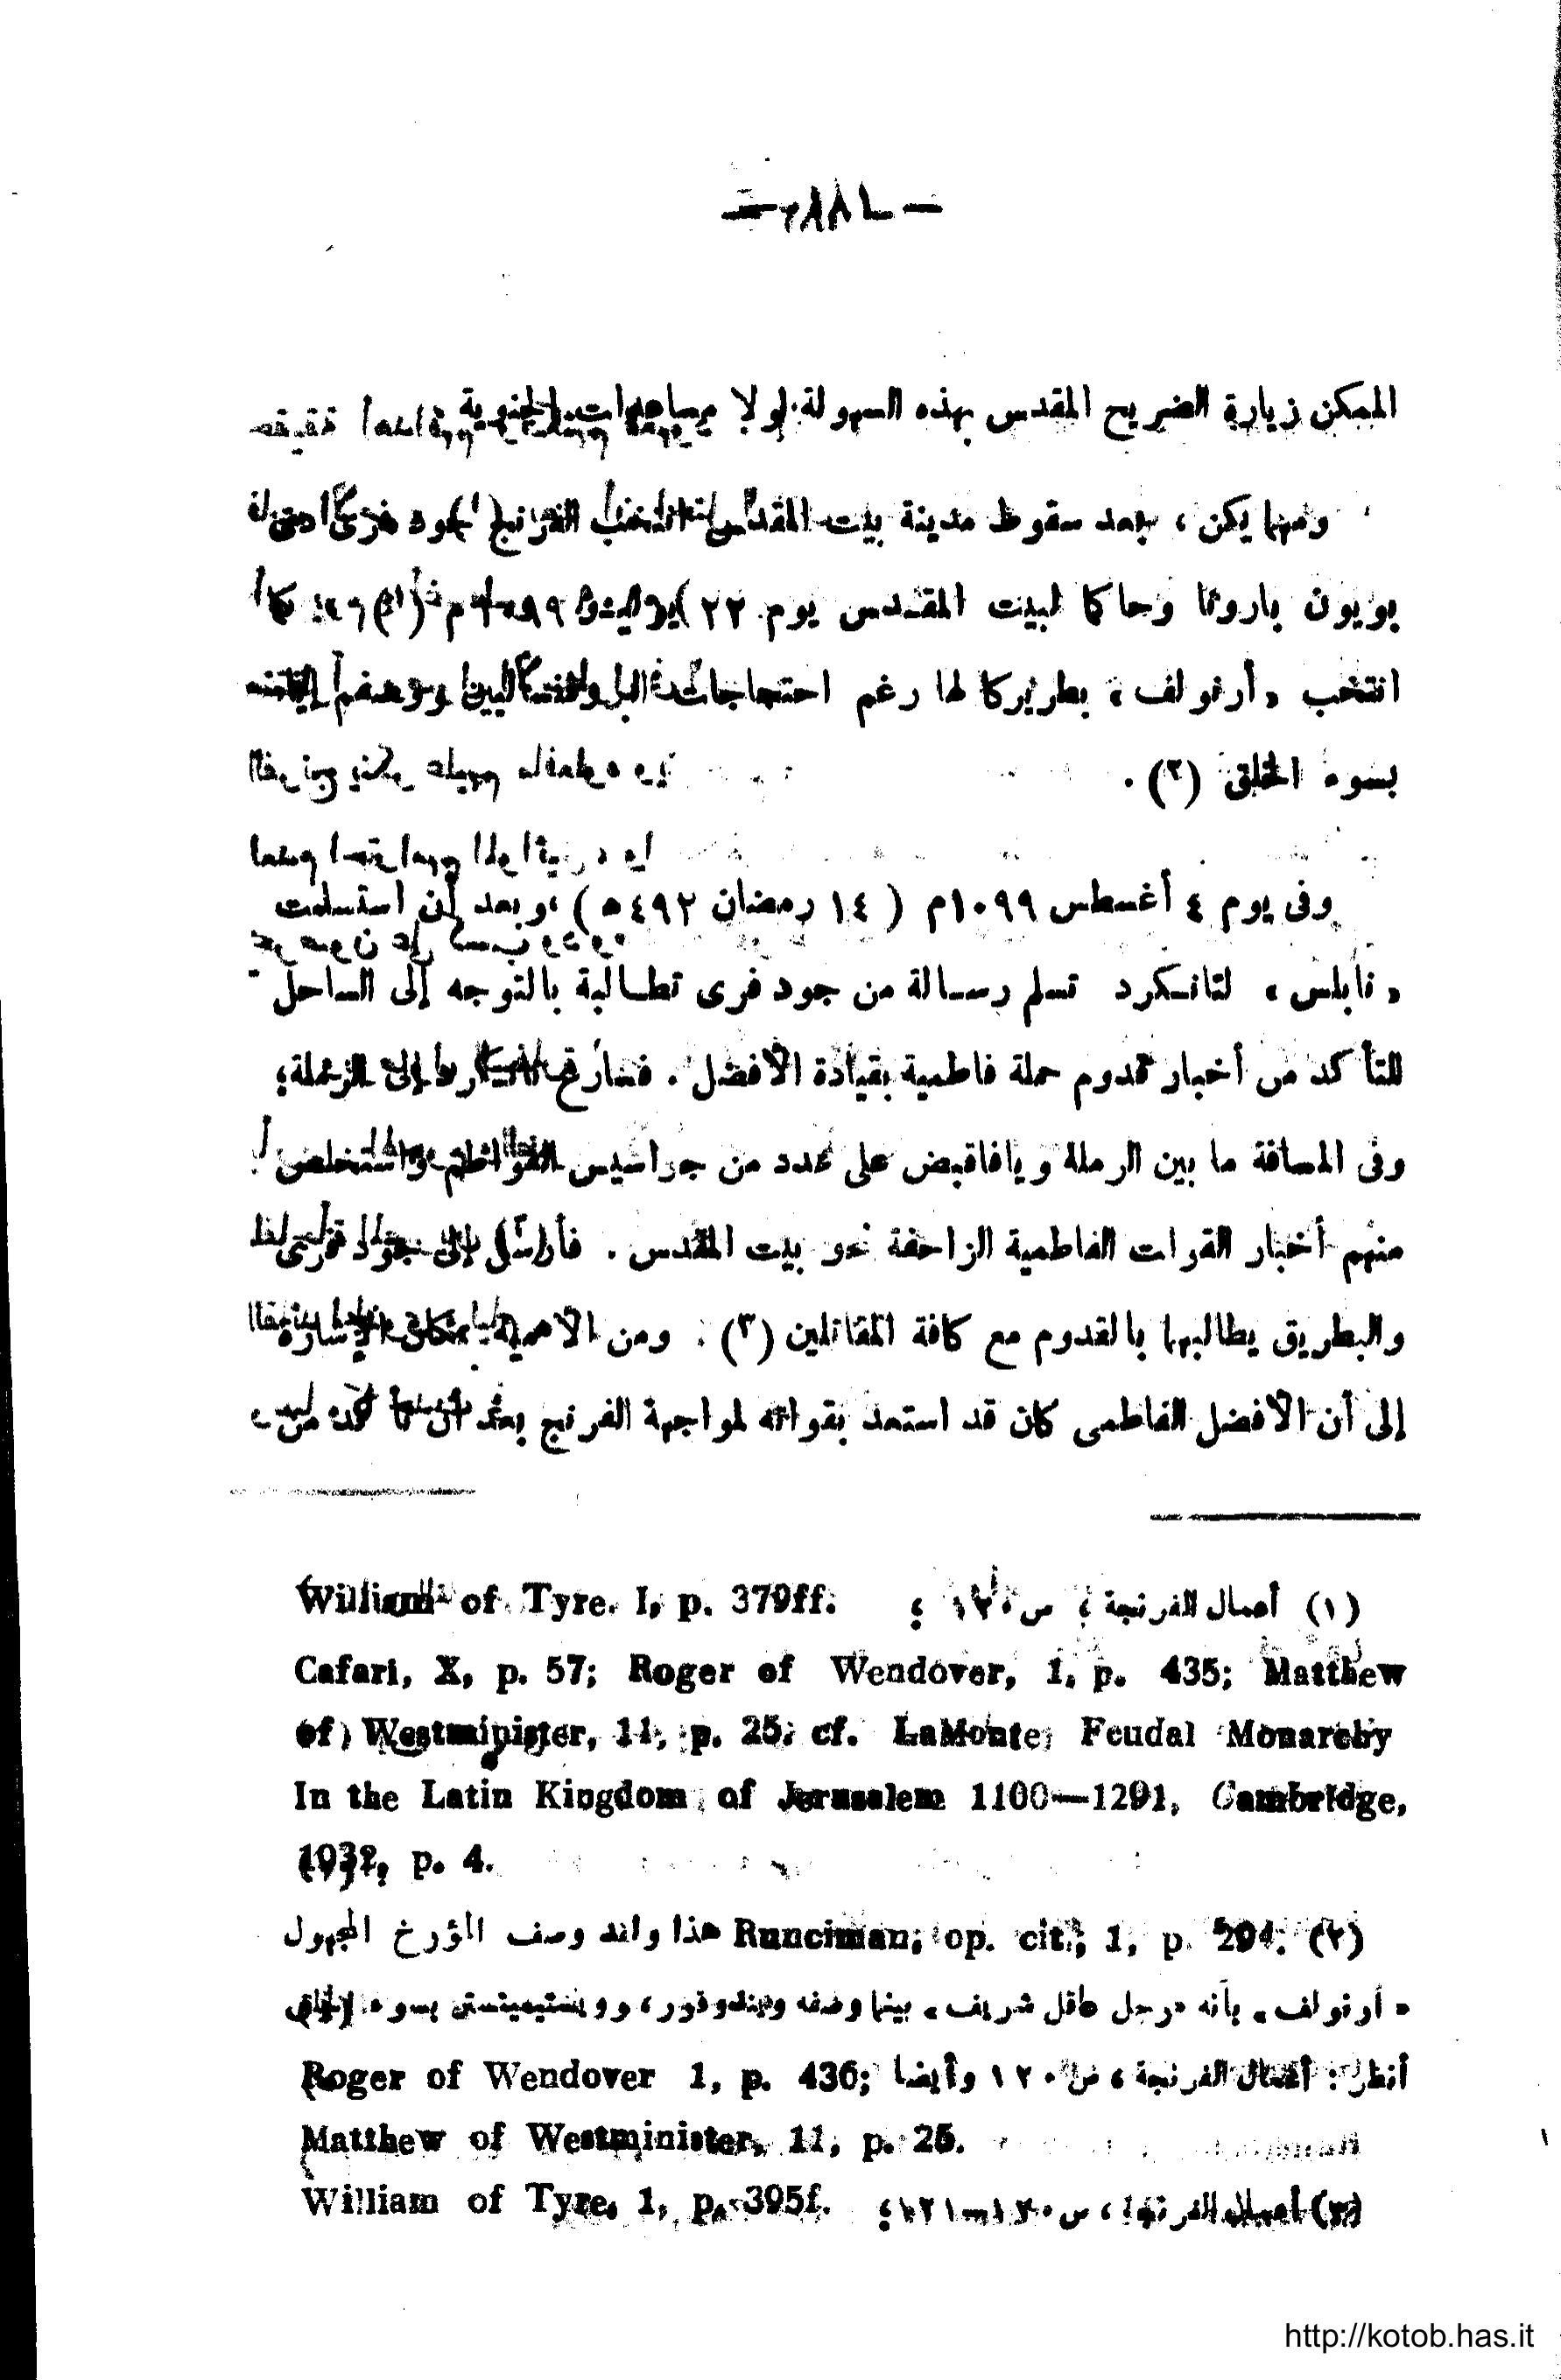 الممكن زيارة الضريح المقدس بهذه السهولة لولا مساعدات الجنوية
ومهما يكن ، بعد سقوط مدينة بيت المقدس انتخب الفرنج جود فرى دى
بويون بارونا وحاكما لبيت المقدس يوم ٢٢ يوليه ١٠٩٩م (١) ، كما
انتخب « أرنولف » بطريركا لها رغم احتجاجات
بسوء الخلق (٢) .
وفى يوم ٤ أغسطس ١٠٩٩م ( ١٤ رمضان ٤٩٢ﻫ ) ، وبعد أن استسلمت
« نابلس » لتانكرد تسلم رسالة من جود فرى تطالبة بالتوجه إلى الساحل
للتأكد من أخبار قدوم حملة فاطمية بقيادة الأفضل . فسارع تانكرد إلى الرملة ؛
وفى المسافة ما بين الرملة ويافا قبض على عدد من جواسيس الفواطم واستخلص
منهم أخبار القوات الفاطمية الزاحفة نحو بيت المقدس . فأرسل إلى جود فرى
والبطريق يطالبهما بالقدوم مع كافة المقاتلين (٣) . ومن الأهمية بمكان الإشارة
إلى أن الأفضل الفاطمى كان قد استعد بقواته لمواجهة الفرنج بعد أن تأكد من
(١) أعمال الفرنجة ، ص ١٢٠ ؛ William of Tyre. I, p. 379ff.
Cafari, X, p. 57; Roger of Wendover, 1, p. 435; Matthew
of Westminister, 11, p. 25; cf. LaMonte, Feudal Monarchy
In the Latin Kingdom of Jerusalem 1100—1291, Cambridge,
1932, p. 4.
(٢) Runciman, op. cit., 1, p. 294. هذا ولقد وصف المؤرخ المجهول
« أرنولف » بأنه « رجل عاقل شريف » بينما وصفه وندوفور ، وويستيمينستر بسوء الخلق
أنظر : أعمال الفرنجة ، ص ١٢٠ وأيضا Roger of Wendover 1, p. 436;
Matthew of Westminister, 11, p. 25.
(٣) أعمال الفرنجة ، ص ١٢٠ — ١٢١ ؛ William of Tyre, 1, p. 395f.
http://kotob.has.it